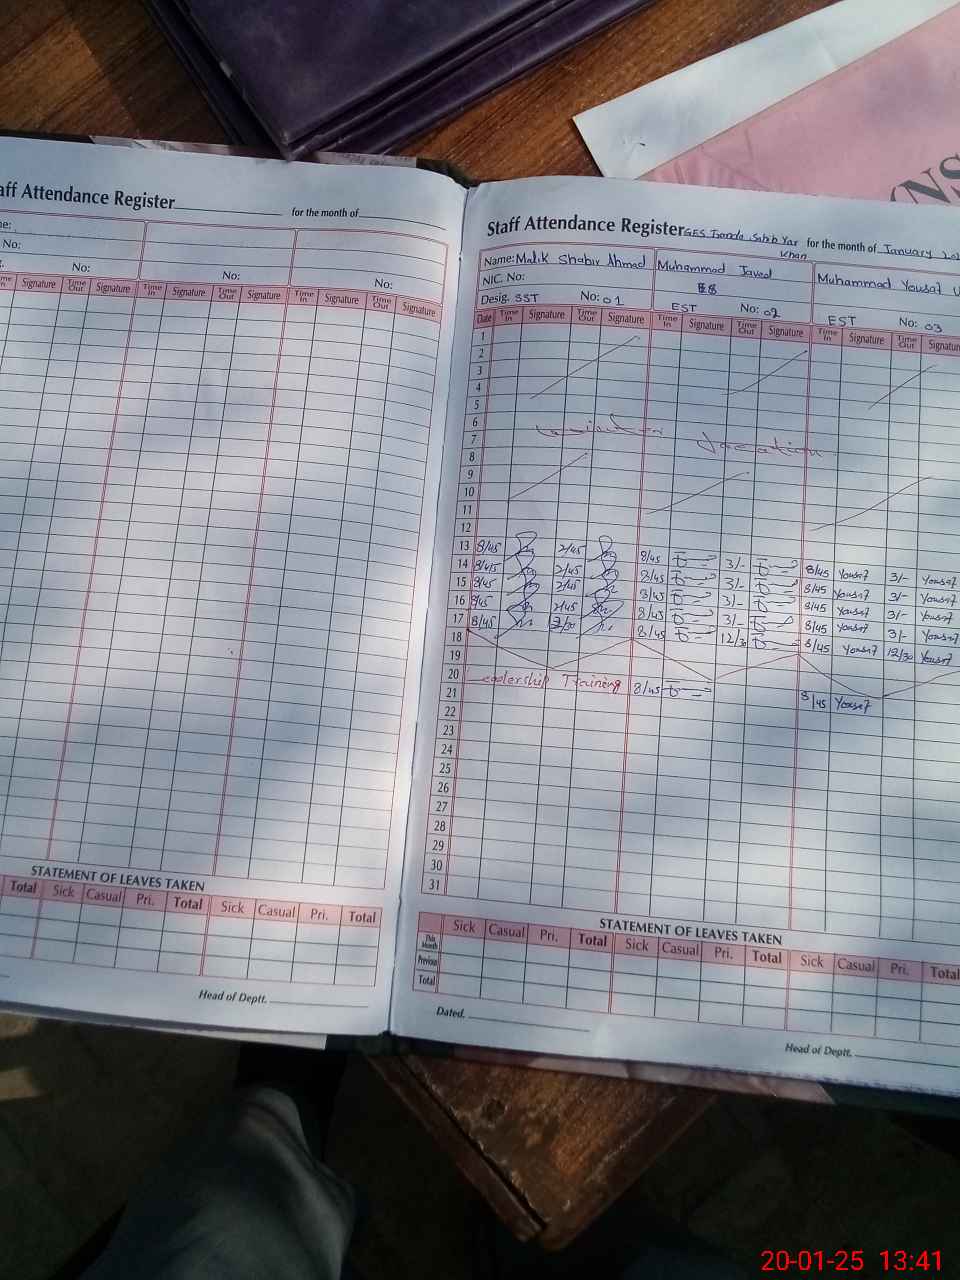 NS
aff Attendance Register for the month of
ne:
No:
No: No: No:
me In Signature Time Out Signature Time In Signature Time Out Signature Time In Signature Time Out Signature
STATEMENT OF LEAVES TAKEN
Total Sick Casual Pri. Total Sick Casual Pri. Total
Head of Deptt.
Staff Attendance Register GES Sahib Yar Khan for the month of January
Name: Malik Shabir Ahmad Muhammad Javed Muhammad Yousaf
NIC No:
Desig. SST No: 01 EST No: 02 EST No: 03
Date Time In Signature Time Out Signature Time In Signature Time Out Signature Time In Signature Time Out Signatur
1
2
3
4
5
6
7 Vacation
8
9
10
11
12
13 8/45 2/45 8/45 3/- 8/45 Yousaf 3/- Yousaf
14 8/45 2/45 8/45 3/- 8/45 Yousaf 3/- Yousaf
15 8/45 2/45 8/45 3/- 8/45 Yousaf 3/- Yousaf
16 8/45 2/45 8/45 3/- 8/45 Yousaf 3/- Yousaf
17 8/45 8/45 12/30 8/45 Yousaf 12/30 Yousaf
18
19
20 Leadership Training 8/45 8/45 Yousaf
21
22
23
24
25
26
27
28
29
30
31
STATEMENT OF LEAVES TAKEN
Sick Casual Pri. Total Sick Casual Pri. Total Sick Casual Pri. Total
This Month
Previous
Total
Dated.
Head of Deptt.
20-01-25 13:41